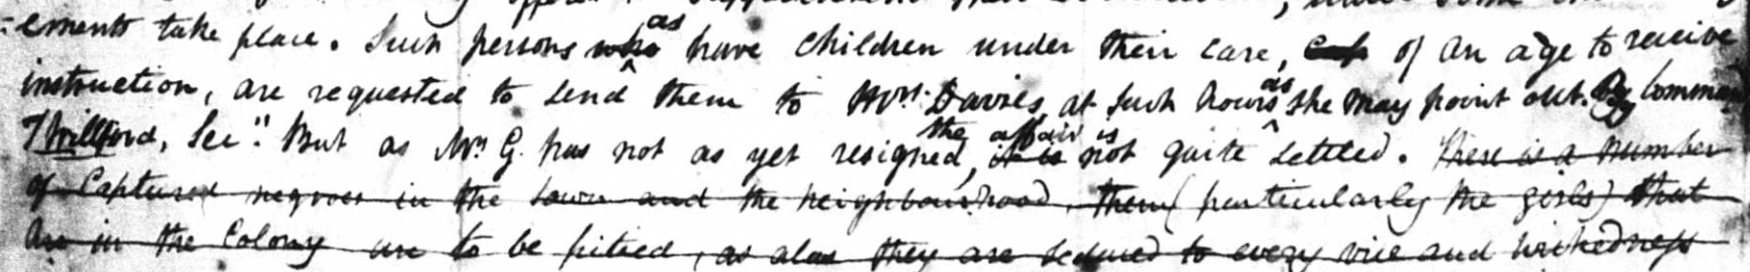 -ements take place. Such persons who as have children under their care, of an age to receive
instruction, are requested to send them to Mrs. Davies, at such hours as she may point out. By Command
Thillford, Sec". But as Mrs G. has not as yet resigned, it is the affair is not quite settled. There is a number
of Captured negroes in the town and the neighbourhood, them (particularly the girls) that
are in the Colony are to be pitied, as alas they are seduced to every vice and wickedness